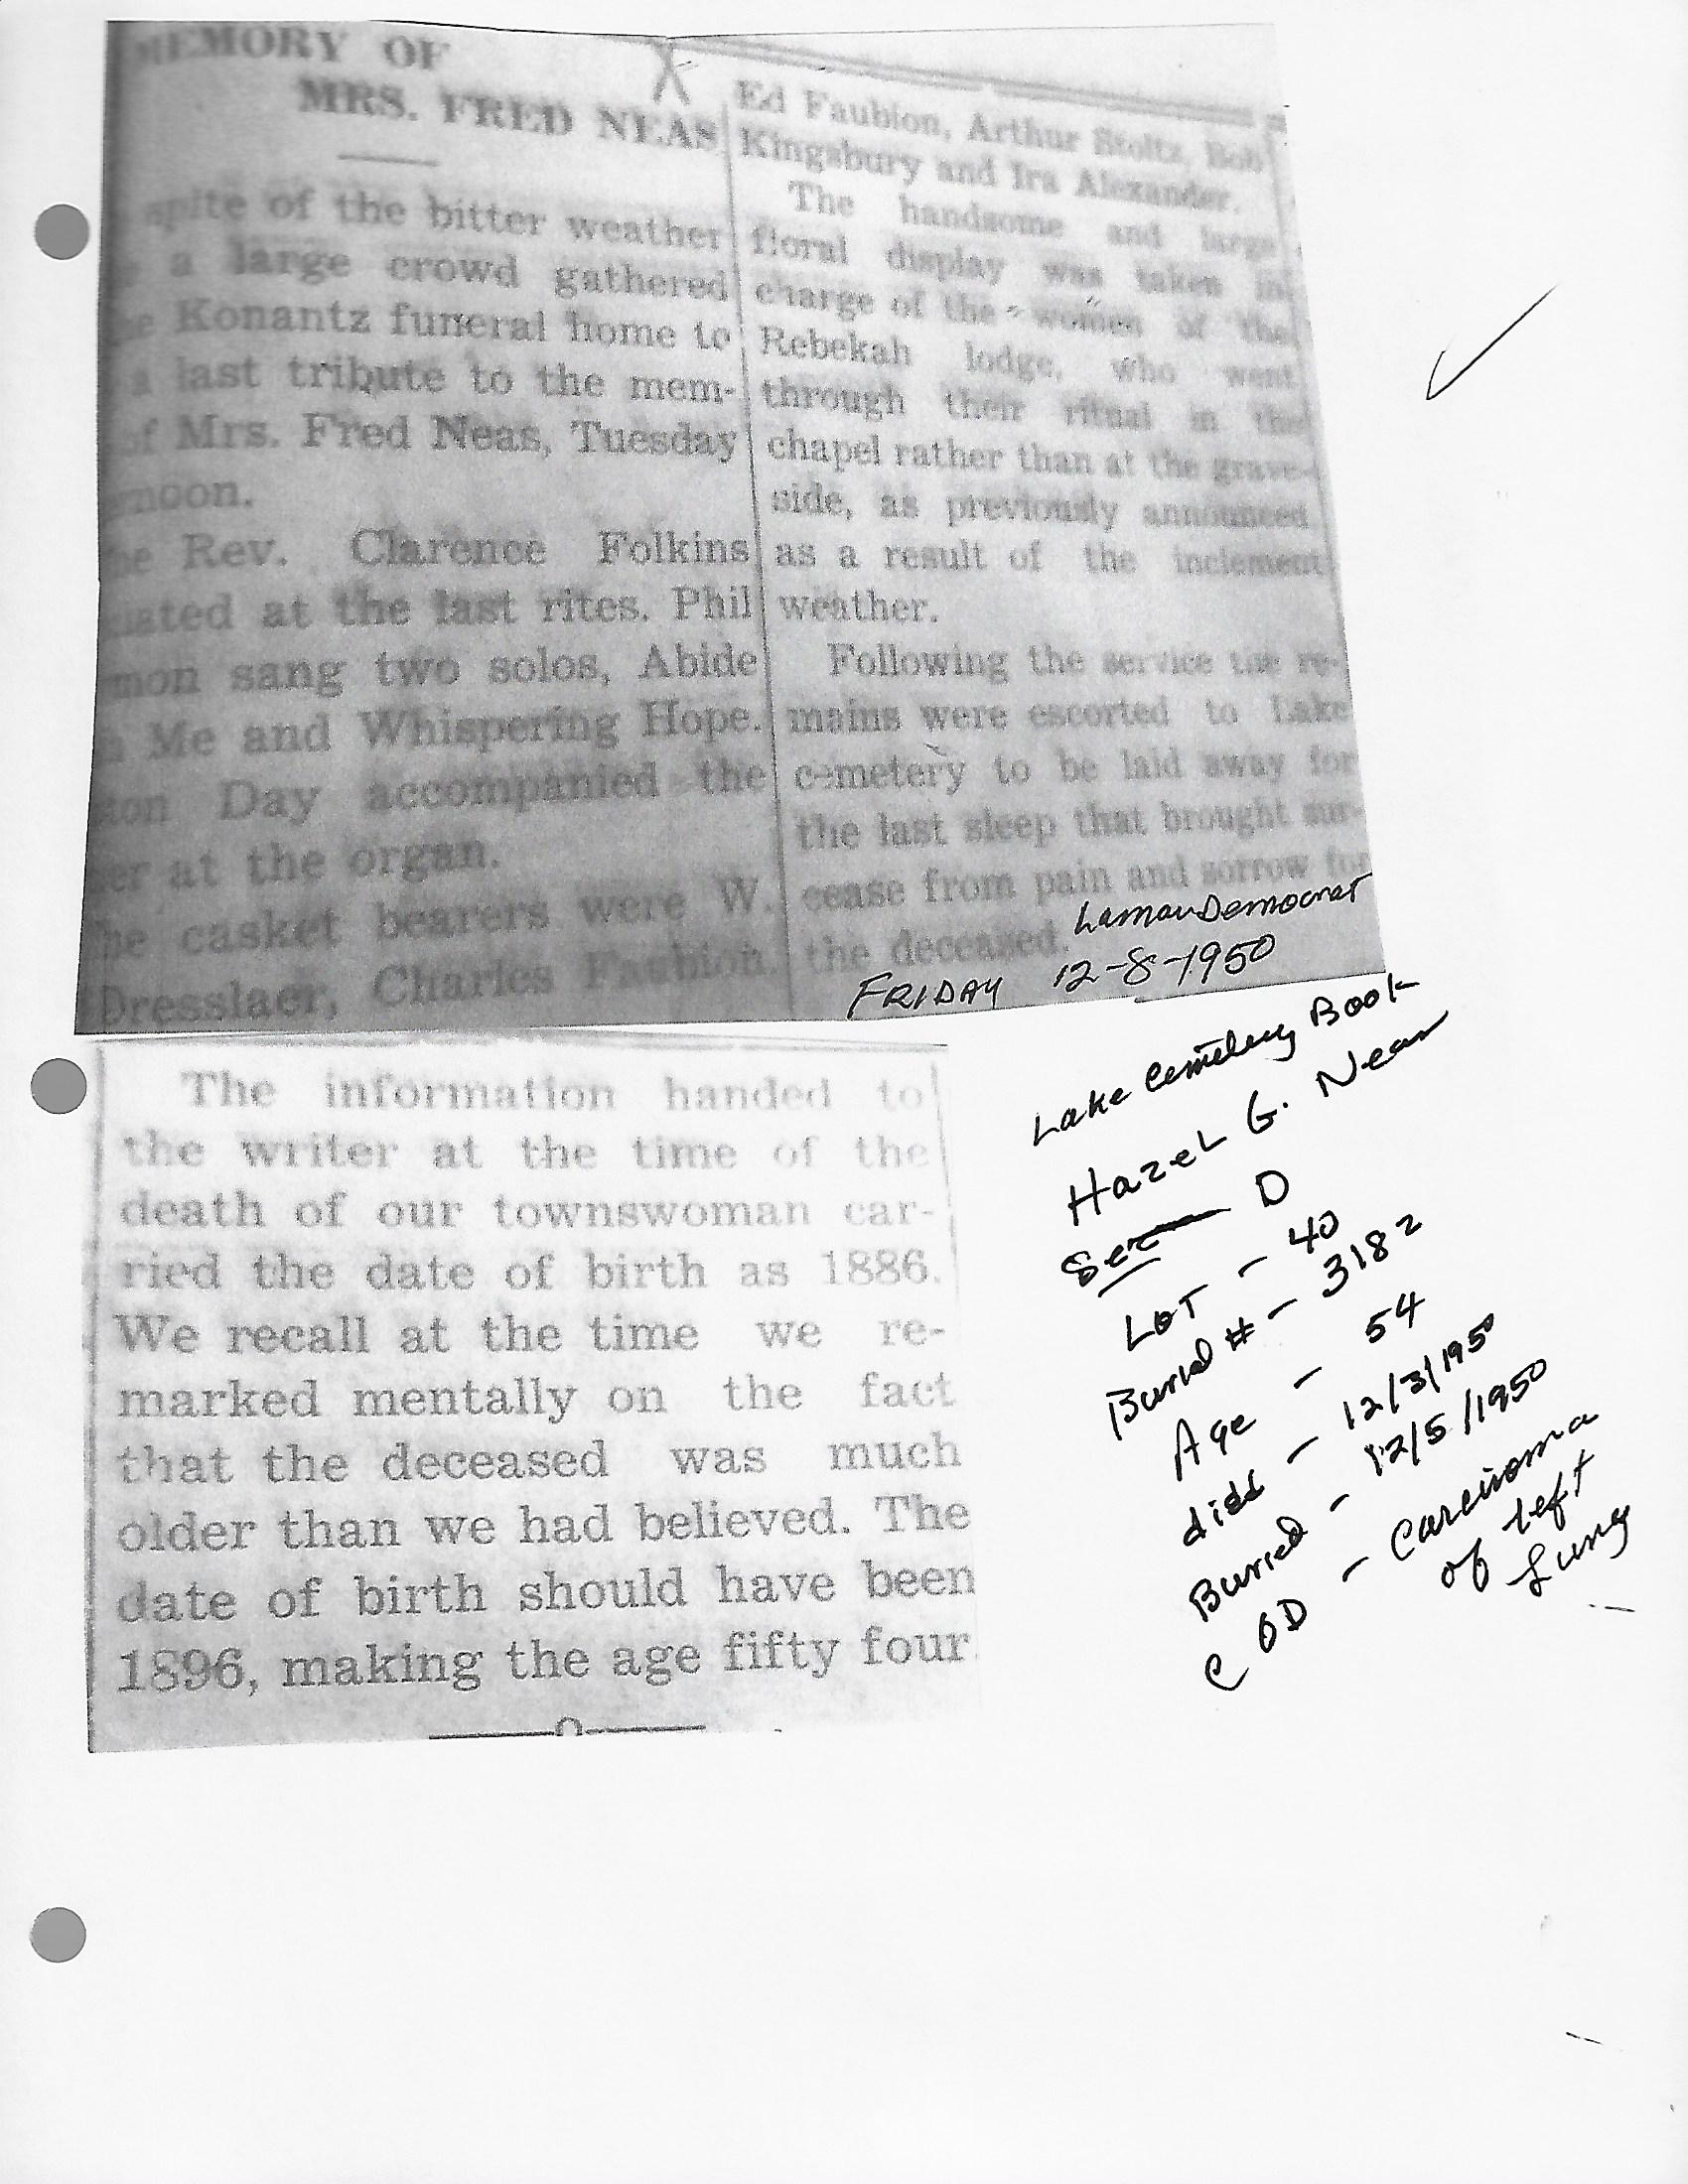 MEMORY OF
MRS. FRED NEAS
spite of the bitter weather
a large crowd gathered
he Konantz funeral home to
a last tribute to the mem-
of Mrs. Fred Neas, Tuesday
rnoon.
he Rev. Clarence Folkins
iated at the last rites. Phil
mon sang two solos, Abide
h Me and Whispering Hope.
ton Day accompanied the
er at the organ.
he casket bearers were W.
Dresslaer, Charles Faubion,
Ed Faubion, Arthur Stoltz, Bob
Kingsbury and Ira Alexander.
The handsome and large
floral display was taken in
charge of the women of the
Rebekah lodge, who went
through their ritual in the
chapel rather than at the grave-
side, as previously announced
as a result of the inclement
weather.
Following the service the re-
mains were escorted to Lake
cemetery to be laid away for
the last sleep that brought sur-
cease from pain and sorrow for
the deceased.
Lamar Democrat
FRIDAY 12-8-1950
The information handed to
the writer at the time of the
death of our townswoman car-
ried the date of birth as 1886.
We recall at the time we re-
marked mentally on the fact
that the deceased was much
older than we had believed. The
date of birth should have been
1896, making the age fifty four
Lake Cemetery Book
Hazel G. Neas
Sec D
LOT - 40
Burial # - 3182
Age - 54
died - 12/3/1950
Buried - 12/5/1950
COD - Carcinoma
of left
Lung